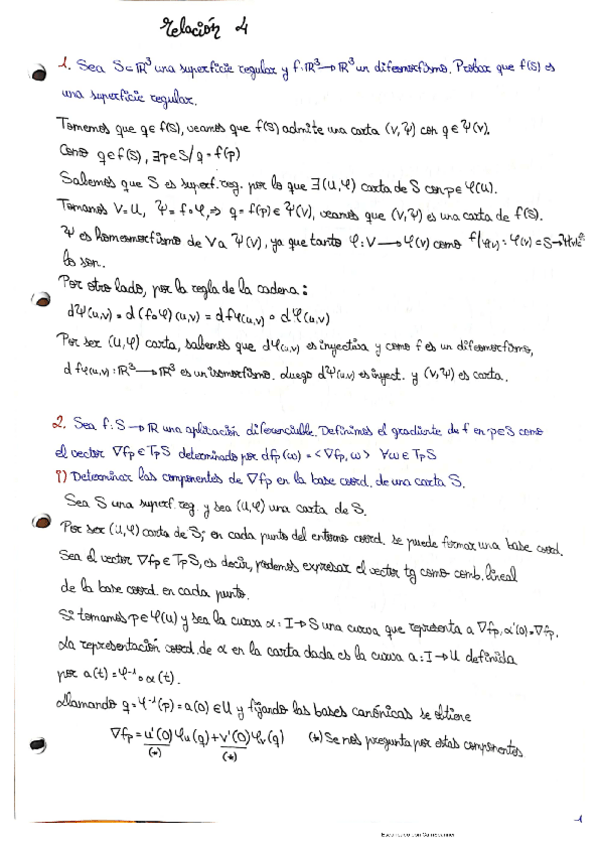 Relación 4
1. Sea S⊂ℝ³ una superficie regular y f:ℝ³→ℝ³ un difeomorfismo. Probar que f(S) es
una superficie regular.
Tomemos que q∈f(S), veamos que f(S) admite una carta (V,Ψ) con q∈Ψ(V).
Como q∈f(S), ∃p∈S/ q=f(p)
Sabemos que S es superf. reg. por lo que ∃(U,φ) carta de S con p∈φ(U).
Tomamos V=U, Ψ=f∘φ,⇒ q=f(p)∈Ψ(V), veamos que (V,Ψ) es una carta de f(S).
Ψ es homeomorfismo de V a Ψ(V), ya que tanto φ:V→φ(V) como
lo son.
Por otro lado, por la regla de la cadena:
dΨ(u,v) = d(f∘φ)(u,v) = dfφ(u,v) ∘ dφ(u,v)
Por ser (U,φ) carta, sabemos que dφ(u,v) es inyectiva y como f es un difeomorfismo,
dfφ(u,v):ℝ³→ℝ³ es un isomorfismo. Luego dΨ(u,v) es inyect. y (V,Ψ) es carta.
2. Sea f:S→ℝ una aplicación diferenciable. Definimos el gradiente de f en p∈S como
el vector ∇fp∈TpS determinado por dfp(ω)=<∇fp,ω> ∀ω∈TpS
1) Determinar las componentes de ∇fp en la base coord. de una carta S.
Sea S una superf. reg. y sea (U,φ) una carta de S.
Por ser (U,φ) carta de S; en cada punto del entorno coord. se puede formar una base coord.
Sea el vector ∇fp∈TpS, es decir, podemos expresar el vector tg como comb. lineal
de la base coord. en cada punto.
Si tomamos p∈φ(U) y sea la curva α:I→S una curva que representa a ∇fp, α'(0)=∇fp.
La representación coord. de α en la carta dada es la curva a:I→U definida
por a(t)=φ⁻¹∘α(t).
Llamando q=φ⁻¹(p)=a(0)∈U y fijando las bases canónicas se obtiene
∇fp = u'(0)φu(q)+v'(0)φv(q) (*) Se nos pregunta por estas componentes
(*) (*)
1